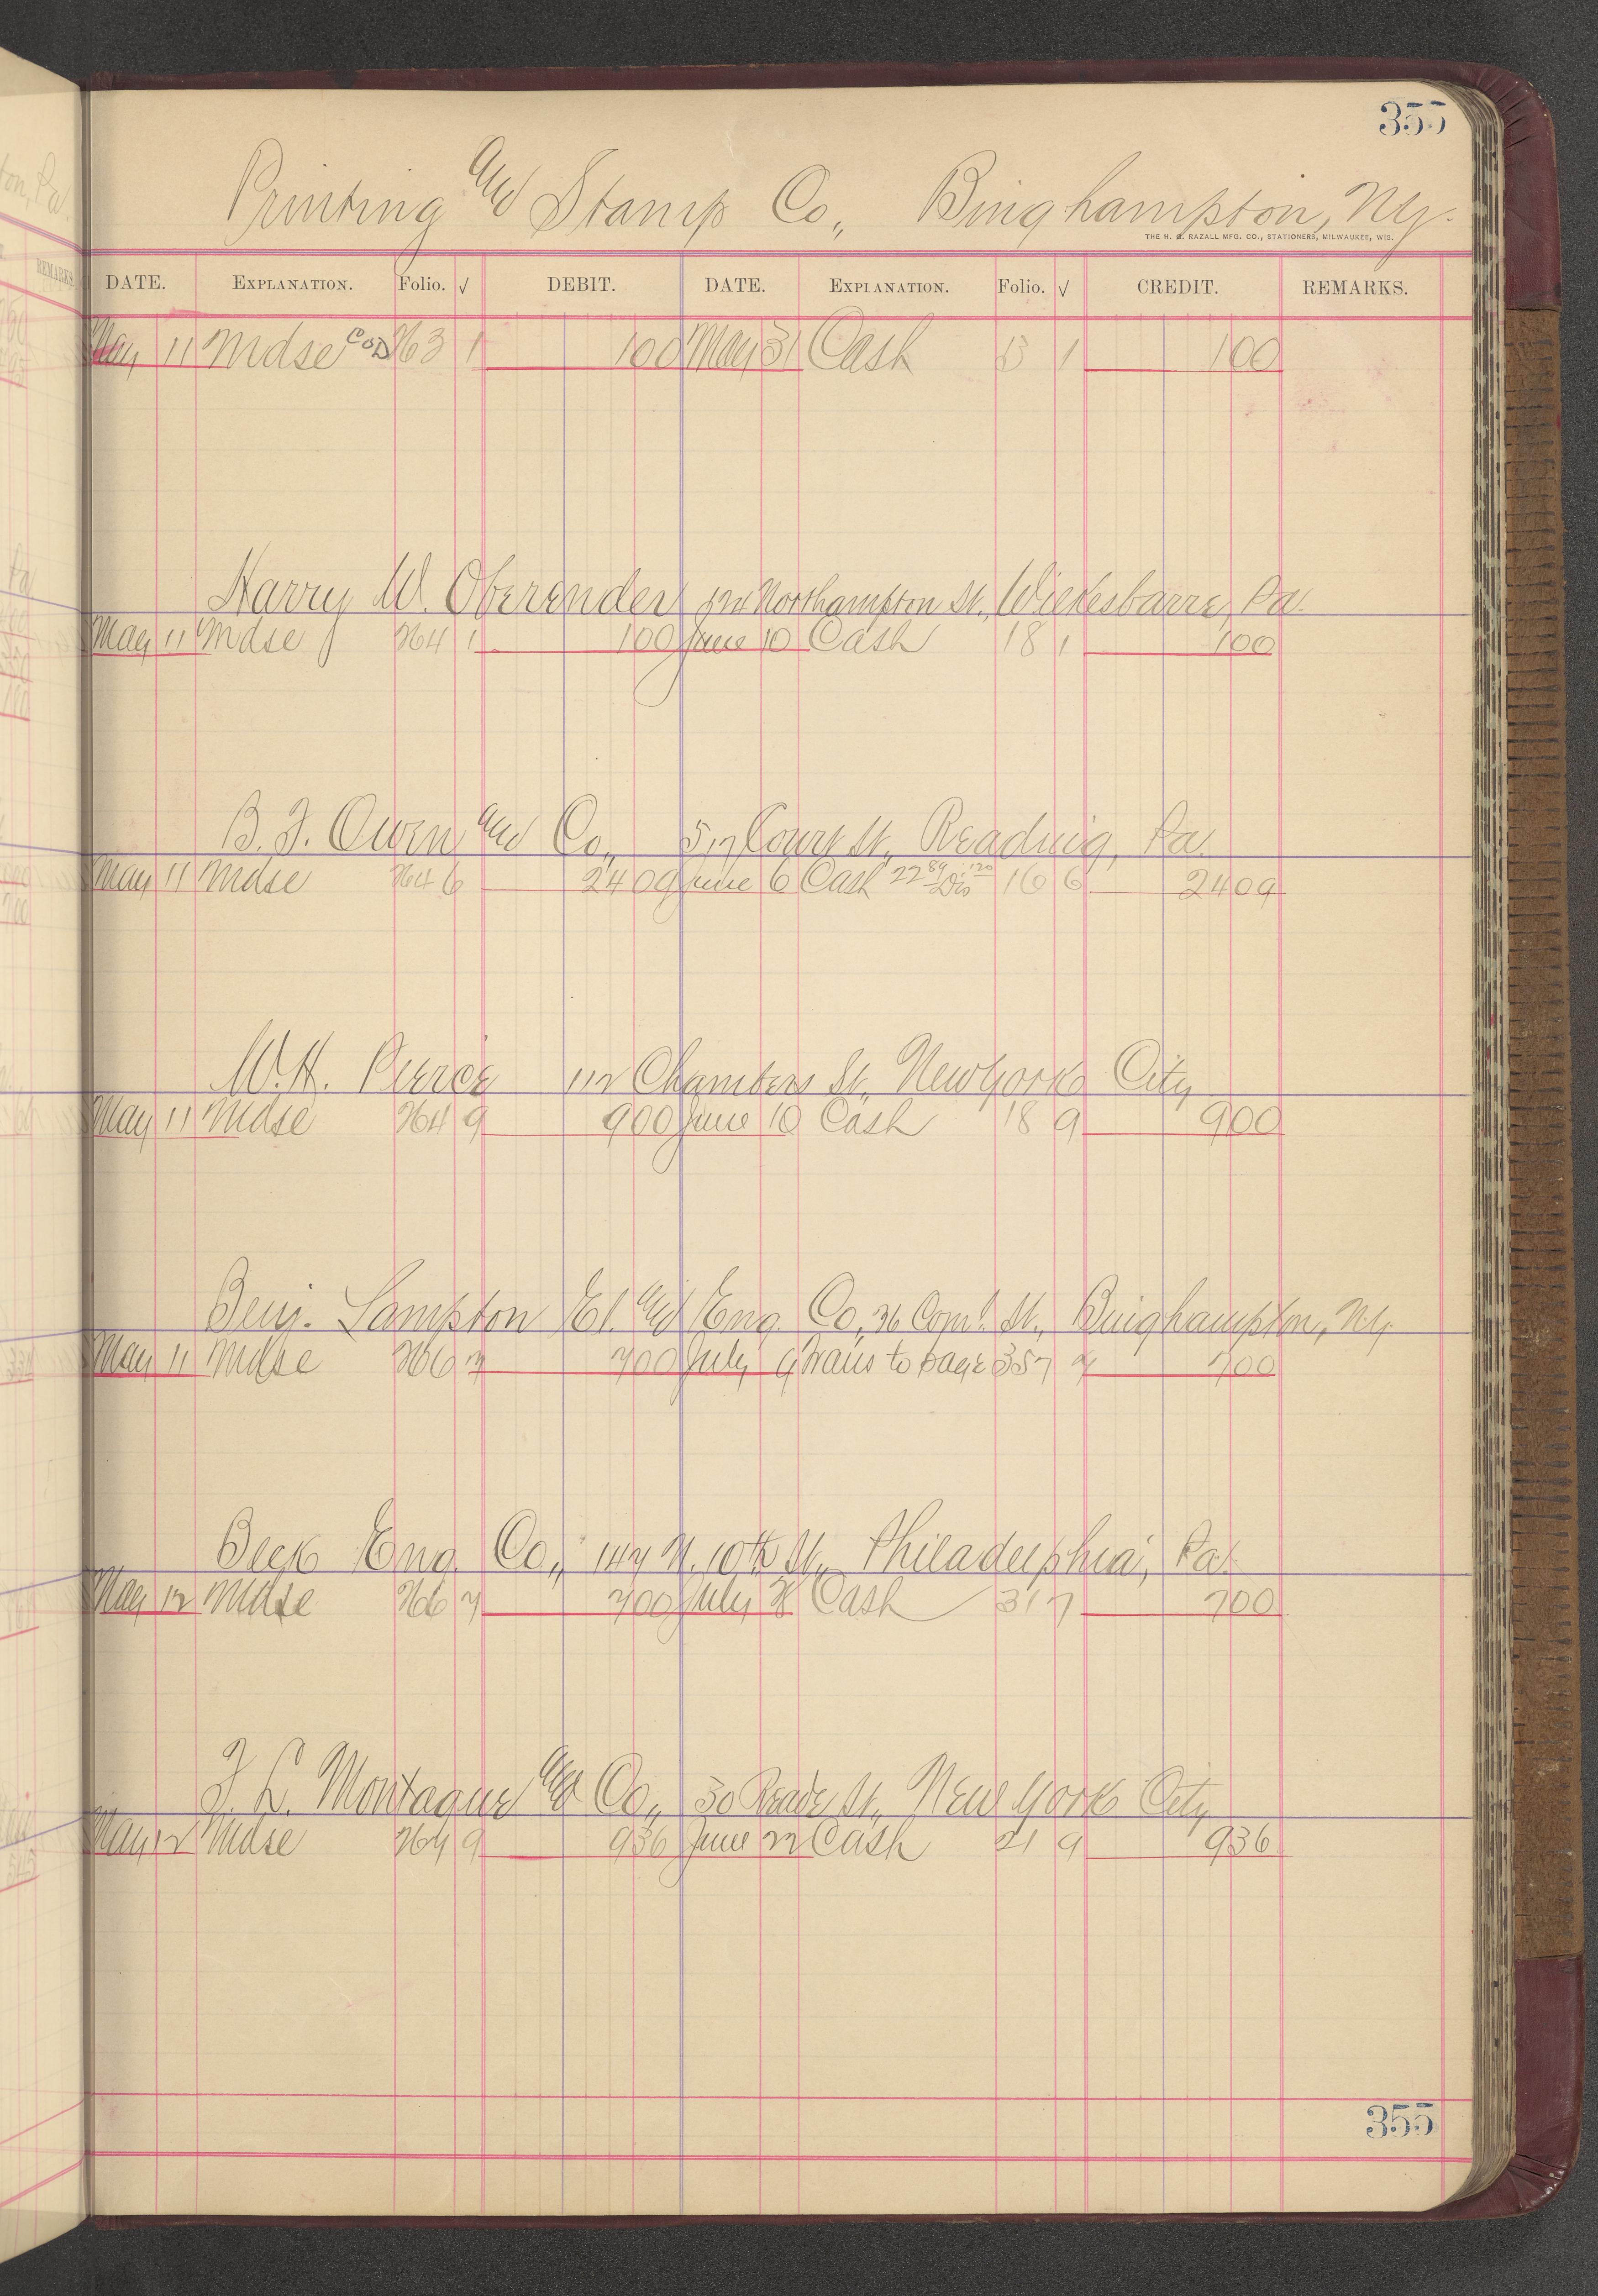 355
Printing and Stamp Co., Binghampton, Ny.
THE H. G. RAZALL MFG. CO., STATIONERS, MILWAUKEE, WIS.
DATE. EXPLANATION. Folio. √ DEBIT. DATE. EXPLANATION. Folio. √ CREDIT. REMARKS.
May 11 Mdse COD 263 1 100 May 31 Cash 13 1 100
Harry W. Oberender Northampton St., Wilkesbarre, Pa.
May 11 Mdse 264 1 100 June 10 Cash 18 1 100
B. F. Owen and Co., Court St., Reading, Pa.
May 11 Mdse 264 6 2409 June 6 Cash 22 89 Dis 120 16 6 2409
W. H. Pierce 112 Chambers St., New York City
May 11 Mdse 264 9 900 June 10 Cash 18 9 900
Benj. Lampton El. and Eng. Co., 36 Coml. St., Binghampton, Ny.
May 11 Mdse 266 7 700 July 9 Trans to page 357 7 700
Beck Eng. Co., 147 N. 10th St., Philadelphia, Pa.
May 12 Mdse 266 7 700 July 8 Cash 31 7 700
F. L. Montague and Co., 30 Reade St., New York City
May 12 Mdse 267 9 936 June 22 Cash 21 9 936
355